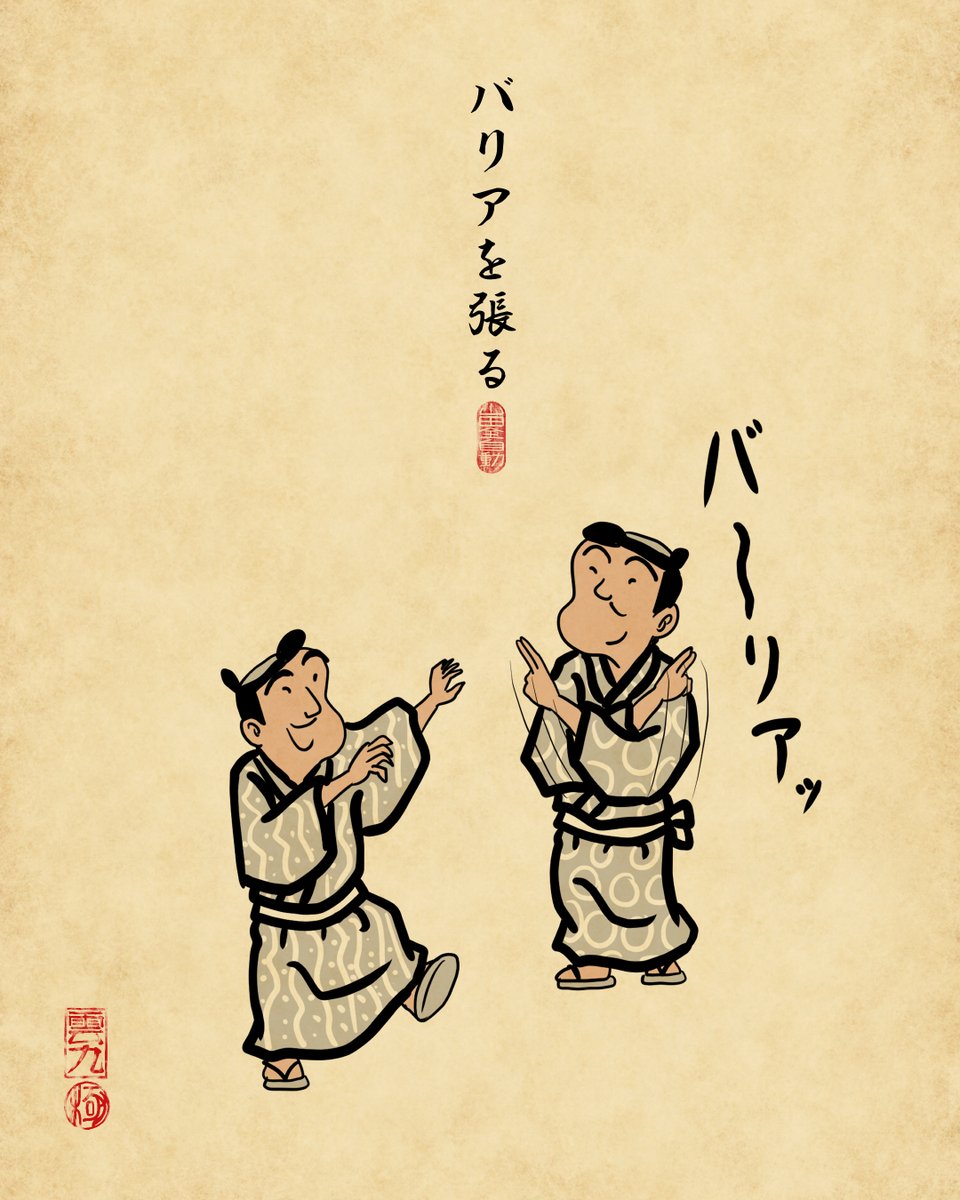 バリアを張る
バ〜リアッ